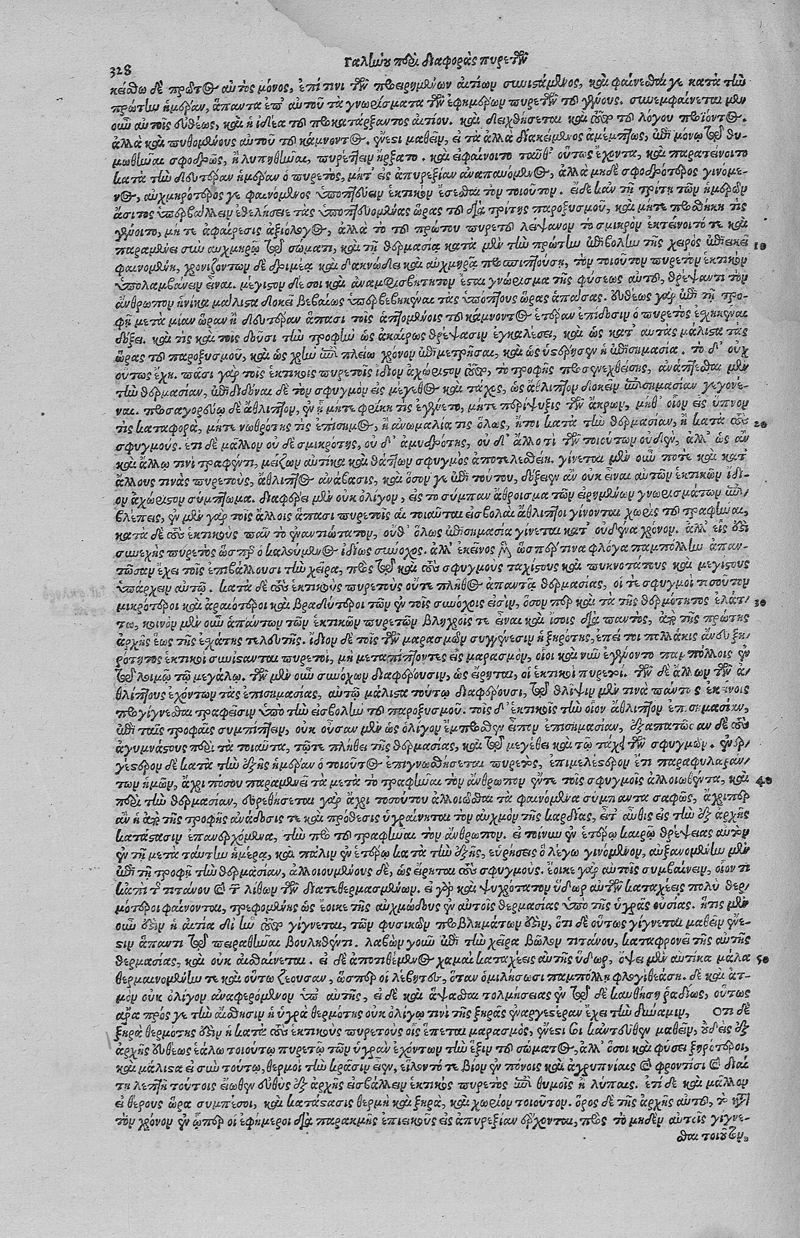 328
Γαλίωου πὲρὶ διαφορᾶς πυρετῶν
κείσθω δὲ πρῶτος αὐτὸς μόνος, ἐπί τινι τῶν προειρημένων αἰτίων συνιστάμενος, καὶ φαίνεσθαί γε κατὰ τὴν
πρώτην ἡμέραν, ἅπαντα ἐπ' αὐτοῦ τὰ γνωρίσματα τῶν ἐφημέρων πυρετῶν τοῦ γένους. συνεμφαίνεται μὲν
οὖν αὐτοῖς εὐθέως, καὶ ἡ ἰδέα τοῦ προκατάρξαντος αἰτίου. καὶ δειχθήσεται καὶ τοῦτο τοῦ λόγου προϊόντος.
ἀλλὰ καὶ πυθομένους αὐτοῦ τοῦ κάμνοντος ἔνεστι μαθεῖν, εἰ τὰ ἄλλα διακείμενος ἀμέμπτως, ἐπὶ μόνῳ τῷ θυ-
μωθῆναι σφοδρῶς, ἢ λυπηθῆναι, πυρέττειν ἤρξατο. καὶ εἰ φαίνοιτο ταῦθ' οὕτως ἔχοντα, καὶ παρατείνοιτο
κατὰ τὴν δευτέραν ἡμέραν ὁ πυρετὸς, μήτ' εἰς ἀπυρεξίαν ἀναπαυόμενος, ἀλλὰ μηδὲ σφοδρότερος γινόμε-
νος, αὐχμηρότερός γε φαινόμενος ὑποπτεύειν ἑκτικὸν ἔσεσθαι τὸν τοιοῦτον. εἰ δὲ κἂν τῇ τρίτῃ τῶν ἡμερῶν
ἄσιτος ὑπερβάλλειν ἐθελήσειε τὰς ὑποπτευομένας ὥρας τοῦ διὰ τρίτης παροξυσμοῦ, καὶ μήτε προσθήκη τις
γένοιτο, μήτε ἀφαίρεσις ἀξιόλογος, ἀλλὰ τὸ τοῦ πρώτου πυρετοῦ λείψανον τὸ σμικρὸν ἐκτείνοιτό τε καὶ
παραμένει σὺν αὐχμηρῷ τῷ σώματι, καὶ τῇ θερμασίᾳ κατὰ μὲν τὴν πρώτην ἐπιβολὴν τῆς χειρὸς ἐπιεικεῖ 10
φαινομένῃ, χρονιζόντων δὲ δριμέᾳ καὶ δακνώδει καὶ αὐχμηρᾷ προσπιπτούσῃ, τὸν τοιοῦτον πυρετὸν ἑκτικὸν
ὑπολαμβάνειν εἶναι. μέγιστον δέ σοι καὶ ἀναμφισβήτητον ἔσται γνώρισμα τῆς φύσεως αὐτοῦ, θρέψαντι τὸν
ἄνθρωπον ἡνίκα μάλιστα δοκεῖ βεβαίως ὑπερβεβηκέναι τὰς ὑπόπτους ὥρας ἁπάσας. εὐθέως γὰρ ἐπὶ τῇ τρο-
φῇ μετὰ μίαν ὥραν ἢ δευτέραν ἅπασι τοῖς ἁπτομένοις τοῦ κάμνοντος ἑτέραν ἐπίδοσιν ὁ πυρετὸς ἐσχηκέναι
δόξει. καὶ τὶς καὶ τοῖς δοῦσι τὴν τροφὴν ὡς ἀκαίρως θρέψασιν ἐγκαλέσει, καὶ ὡς κατ' αὐτὰς μάλιστα τὰς
ὥρας τοῦ παροξυσμοῦ, καὶ ὡς χρὴν ἐπὶ πλείω χρόνον ἐπιμετρῆσαι, καὶ ὡς ὑστέρησεν ἡ ἐπισημασία. τὸ δ' οὐχ
οὕτως ἔχει. πᾶσι γὰρ τοῖς ἑκτικοῖς πυρετοῖς ἴδιον ἀχώριστον τοῦτο, τὸ τροφῆς προσενεχθείσης, ἀνάπτεσθαι μὲν
τὴν θερμασίαν, ἐπιδιδόναι δὲ τὸν σφυγμὸν εἰς μέγεθος καὶ τάχος, ὡς ἄθλιπτον δοκεῖν ἐπισημασίαν γεγονέ-
ναι. προσαγορεύω δὲ ἄθλιπτον, ἐν ᾗ μήτε φρίκη τις ἐγένετο, μήτε περίψυξις τῶν ἄκρων, μηθ' οἷον εἰς ὕπνον
τὶς καταφορὰ, μήτε νωθρότης τὶς ἐπίσημος, ἢ ἀνωμαλία τὶς ὅλως, ἤτοι κατὰ τὴν θερμασίαν, ἢ κατὰ τοὺς 20
σφυγμούς. ἔτι δὲ μᾶλλον οὐδὲ σμικρότης, οὐδ' ἀμυδρότης, οὐδ' ἄλλο τὶ τῶν τοιούτων οὐδὲν, ἀλλ' ὡς ἂν
καὶ ἄλλῳ τινὶ τραφέντι, μείζων αὐτίκα καὶ θάττων σφυγμὸς ἀποτελεσθείη. γίνεται μὲν οὖν ποτε καὶ κατ'
ἄλλους τινὰς πυρετοὺς, ἄθλιπτος ἀνάβασις, καὶ ὅσον γε ἐπὶ τούτου, δόξειεν ἂν οὐκ εἶναι αὐτῶν ἑκτικῶν ἴδι-
ον ἀχώριστον σύμπτωμα. διαφέρει μὲν οὐκ ὀλίγον, εἰς τὸ σύμπαν ἄθροισμα τῶν εἰρημένων γνωρισμάτων ἐπι-
βλέπεις, ἐν μὲν γὰρ τοῖς ἄλλοις ἅπασι πυρετοῖς αἱ τοιαῦται εἰσβολαὶ ἄθλιπτοι γίνονται χωρὶς τοῦ τραφῆναι,
κατὰ δὲ τοὺς ἑκτικοὺς πᾶν τὸ ἐναντιώτατον, οὐθ' ὅλως ἐπισημασία γίνεται κατ' οὐδένα χρόνον. ἀλλ' εἷς ἐστι
συνεχὴς πυρετὸς ὥσπερ ὁ καλούμενος ἰδίως σύνοχος. ἀλλ' ἐκεῖνος μὲν ὥσπερ τινὰ φλόγα παμπόλλην ἀπαν-
τῶσαν ἔχει τοῖς ἐπιβάλλουσι τὴν χεῖρα, πρὸς τῷ καὶ τοὺς σφυγμοὺς ταχίστους καὶ πυκνοτάτους καὶ μεγίστους
ὑπάρχειν αὐτῷ. κατὰ δὲ τοὺς ἑκτικοὺς πυρετοὺς οὔτε πλῆθος ἀπαντᾷ θερμασίας, οἵ τε σφυγμοὶ τοσοῦτον
μικρότεροι καὶ ἀραιότεροι καὶ βραδύτεροι τῶν ἐν τοῖς συνόχοις εἰσὶν, ὅσον περ καὶ τὰ τῆς θερμότητος ἐλάτ- 30
τω, κοινὸν μὲν οὖν ἁπάντων τῶν ἑκτικῶν πυρετῶν βληχροῖς τε εἶναι καὶ ἴσοις διὰ παντὸς, ἀπὸ τῆς πρώτης
ἀρχῆς ἕως τῆς ἐσχάτης τελευτῆς. ἴδιον δὲ τοῖς τῶν μαρασμῶν συγγένεσιν ἡ ξηρότης, ἐπεί τοι πολλάκις ἄνευ ξη-
ρότητος ἑκτικοὶ συνίστανται πυρετοὶ, μὴ μεταπίπτοντες εἰς μαρασμὸν, οἷοι καὶ νῦν ἐγένοντο παμπόλλοις ἐν
τῷ λοιμῷ τῷ μεγάλῳ. τῶν μὲν οὖν συνόχων διαφέρουσιν, ὡς εἴρηται, οἱ ἑκτικοὶ πυρετοί. τῶν δὲ ἄλλων τῶν ἀ-
θλίπτους ἐχόντων τὰς ἐπισημασίας, αὐτῷ μάλιστα τούτῳ διαφέρουσι, τῷ θλίψιν μέν τινα πάντως ἐκείνοις
προγίγνεσθαι τραφεῖσιν ὑπὸ τὴν εἰσβολὴν τοῦ παροξυσμοῦ. τοῖς δ' ἑκτικοῖς τὴν οἷον ἄθλιπτον ἐπισημασίαν,
ἐπὶ ταῖς τροφαῖς συμπίπτειν, οὐκ οὖσαν μὲν ὡς ὀλίγον ἔμπροσθεν εἶπον ἐπισημασίαν, ἐξαπατῶσαν δὲ τοὺς
ἀγυμνάστους περὶ τὰ τοιαῦτα, τῷ τε πλήθει τῆς θερμασίας, καὶ τῷ μεγέθει καὶ τῷ τάχει τῶν σφυγμῶν. ἐναρ-
γέστερον δὲ κατὰ τὴν ἑξῆς ἡμέραν ὁ τοιοῦτος ἐπιγνωσθήσεται πυρετὸς, ἐπιμελέστερον ἔτι παραφυλαξάν-
των ἡμῶν, ἄχρι πόσου παραμένει τὰ μετὰ τὸ τραφῆναι τὸν ἄνθρωπον ἔν τε τοῖς σφυγμοῖς ἀλλοιωθέντα, καὶ 40
περὶ τὴν θερμασίαν, εὑρεθήσεται γὰρ ἄχρι τοσούτου ἀλλοιοῦσθαι τὰ φαινόμενα σύμπαντα σαφῶς, ἄχρι περ
ἂν ἡ ἀπὸ τῆς τροφῆς ἀνάδοσίς τε καὶ πρόσθεσις ὑγραίνηται τὸν αὐχμὸν τῆς καρδίας, εἶτ' αὖθις εἰς τὴν ἐξ ἀρχῆς
κατάστασιν ἐπανερχόμενα, τὴν πρὸ τοῦ τραφῆναι τὸν ἄνθρωπον. εἰ τοίνυν ἐν ἑτέρῳ καιρῷ θρέψειας αὐτὸν
ἐν τῇ μετὰ ταύτην ἡμέρᾳ, καὶ πάλιν ἐν ἑτέρῳ κατὰ τὴν ἑξῆς, εὑρήσεις ὃ λέγω γινόμενον, αὐξανομένην μὲν
ἐπὶ τῇ τροφῇ τὴν θερμασίαν, ἀλλοιουμένους δὲ, ὡς εἴρηται τοὺς σφυγμούς. ἔοικε γὰρ αὐτοῖς συμβαίνειν, οἷόν τι
κἀπὶ τοῦ τιτάνου καὶ τῶν λίθων τῶν διατεθερμασμένων. εἰ γὰρ καὶ ψυχρότατον ὕδωρ αὐτῶν καταχέεις πολὺ θερ-
μότεροι φαίνονται, τρεφομένης ὡς ἔοικε τῆς αὐχμώδους ἐν αὐτοῖς θερμασίας ὑπὸ τῆς ὑγρᾶς οὐσίας. ἥτις μὲν
οὖν ἐστιν ἡ αἰτία δι' ἣν τοῦτο γίγνεται, τῶν φυσικῶν προβλημάτων ἐστὶν, ὅτι δὲ οὕτως γίγνεται μαθεῖν ἔνε-
στιν ἅπαντι τῷ πειραθῆναι βουληθέντι. λαβὼν γοῦν ἐπὶ τὴν χεῖρα βῶλον τιτάνου, καταφρονεῖ τῆς αὐτῆς
θερμασίας, καὶ οὐκ αἰσθάνεται. εἰ δὲ ἀποτιθέμενος χαμαὶ καταχέεις αὐτῆς ὕδωρ, ὄψει μὲν αὐτίκα μάλα 50
θερμαινομένην τε καὶ οὕτω ζέουσαν, ὥσπερ οἱ λέβητες, ὅταν ὁμιλήσωσι παμπόλλῃ φλογὶ θεάσῃ. δὲ καὶ ἀτ-
μὸν οὐκ ὀλίγον ἀναφερόμενον ὑπ' αὐτῆς, εἰ δὲ καὶ ἅψασθαι τολμήσειας ἐν τῷδε καυθήσῃ ῥᾳδίως, οὕτως
ἄρα πρός γε τὴν αἴσθησιν ἡ ὑγρὰ θερμότης οὐκ ὀλίγῳ τινὶ τῆς ξηρᾶς ἐναργεστέραν ἔχει τὴν δύναμιν, ὅτι δὲ
ξηρὰ θερμότης ἐστὶν ἡ κατὰ τοὺς ἑκτικοὺς πυρετοὺς οἷς ἕπεται μαρασμὸς, ἔνεστί σοι κἀντεῦθεν μαθεῖν, οὐδεὶς ἐξ
ἀρχῆς εὐθέως ἑάλω τοιούτῳ πυρετῷ τῶν ὑγρὰν ἐχόντων τὴν ἕξιν τοῦ σώματος, ἀλλ' ὅσοι καὶ φύσει ξηρότεροι,
καὶ μάλιστα εἰ σὺν τούτῳ, θερμοὶ τὴν κρᾶσιν εἶεν, εἵλοντό τε βίον ἐν πόνοις καὶ ἀγρυπνίαις καὶ φροντίσι καὶ διαί-
τῃ λεπτῇ τούτοις εἴωθεν εὐθὺς ἐξ ἀρχῆς εἰσβάλλειν ἑκτικὸς πυρετὸς ἐπὶ θυμοῖς ἢ λύπαις. ἔτι δὲ καὶ μᾶλλον
εἰ θέρους ὥρα συμπέσοι, καὶ κατάστασις θερμὴ καὶ ξηρὰ, καὶ χωρίον τοιοῦτον. ὅρος δὲ τῆς ἀρχῆς αὐτοῦ, τὸ μετὰ
τὸν χρόνον ἐν ᾧπερ οἱ ἐφήμεροι διὰ παρακμῆς ἐπιεικοῦς εἰς ἀπυρεξίαν ἔρχονται, πρὸς τὸ μηδὲν αὐτοῖς γίγνε-
σθαι τοιοῦτον.